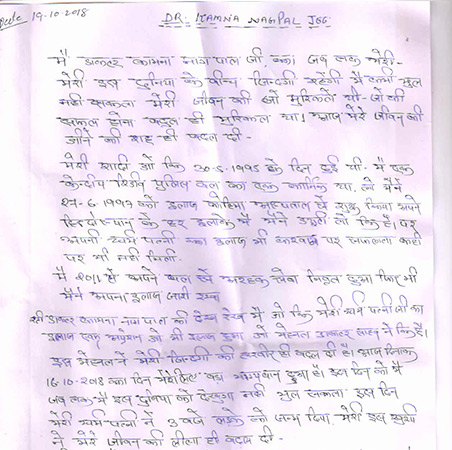 Date 19-10-2018 DR. KAMNA NAGPAL JGG
मैं डाक्टर कामना नाग पाल जी, का जब तक मेरी-
मेरी इस दुनिया के बीच जिन्दगी रहेगी मैं कभी भूल
नही सकता मेरी जीवन की जो मुश्किलें थी - जो की
होना बहुत ही मुश्किल था। आज मेरे जीवन की
जीने की राह ही बदल दी -
मेरी शादी जो कि 30-5-1995 के दिन हुई थी. मैं एक
केन्द्रीय रिजर्व पुलिस बल का एक कार्मिक था, मैंने
6-1997 का इलाज अस्पताल से शुरू किया अपने
हिन्दोस्थान के हर इलाके में मैंने डयूटी की है, पर
अपनी धर्म पत्नी का इलाज भी करवाया पर सफलता कही
पर भी नही मिली -
मैं 2011 से अपने बल से सेवा निवृत हुआ फिर भी
मैंने अपना इलाज जारी रखा
डाक्टर कामना नाग पाल की देख रेख में जो कि मेरी धर्म पत्नी जी का
इलाज एवम आप्रेशन जो भी इलाज हुआ जो मेहनत डाक्टर साहब ने कि है।
इस मेहनत ने मेरी जिन्दगी की तस्वीर ही बदल दी है। आज दिनांक
16-10-2018 का दिन मेरे लिए हुआ है। इस दिन को मैं
जब तक मैं इस दुनिया को देखूगा नही भुल सकता इस दिन
मेरी धर्म पत्नी ने 3 बजे लड़के को जन्म दिया, मेरी इस खुशी
ने मेरे जीवन की लीला ही बदल दी -